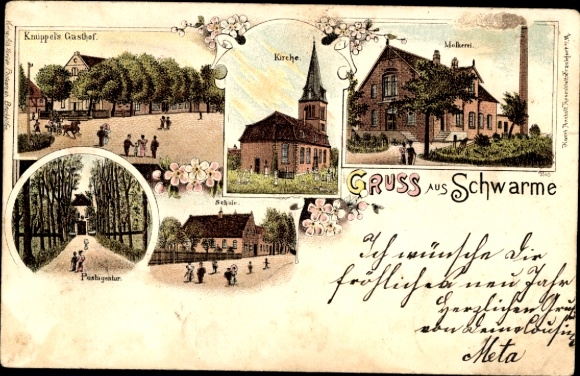 Knüppel's Gasthof.
Kirche.
Molkerei.
GRUSS AUS Schwarme
Schule.
Postagentur.
Ich wünsche Dir
fröhliches neu Jahr
Herzlichen Gruß
von deine Cousine
Meta